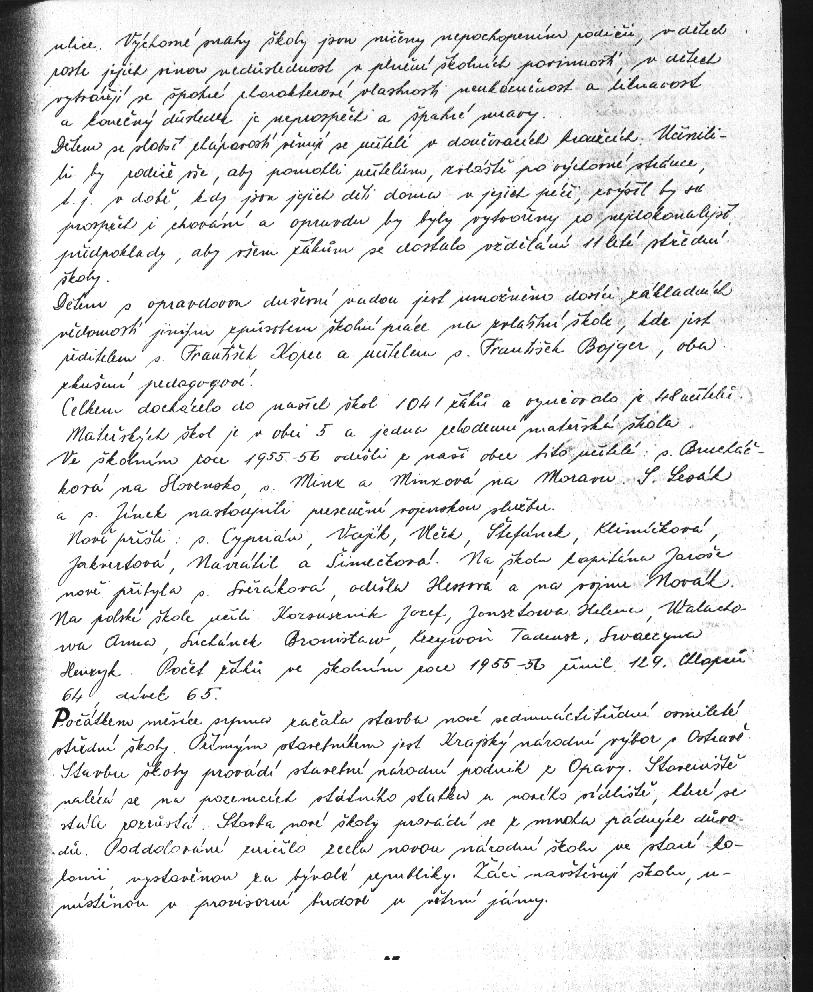 ulice. Výchovné snahy školy jsou ničeny nepochopením rodičů, v dětech
roste jejich vinou nedůslednost v plnění školních povinností, v dětech
vytvářejí se špatné charakterové vlastnosti neukázněnost a liknavost
a konečný důsledek je neprospěch a špatné mravy.
Dětem se slabší chápavostí věnují se učitelé v doučovacích kroužcích. Učinili-
li by rodiče vše, aby pomohli učitelům, zvláště po výchovné stránce,
t.j. v době, kdy jsou jejich děti doma v jejich péči, zvýšil by se
prospěch i chování a opravdu by byly vytvořeny ty nejdokonalejší
předpoklady, aby všem žákům se dostalo vzdělání 11 leté střední
školy.
Dětem s opravdovou duševní vadou jest umožněno dosíci základních
vědomostí jiným způsobem školní práce na zvláštní škole, kde jest
ředitelem s. František Kopec a učitelem s. František Bojger, oba
zkušení pedagogové.
Celkem docházelo do našich škol 1041 žáků a vyučovalo je 48 učitelů.
Mateřských škol je v obci 5 a jedna celodenní mateřská škola.
Ve školním roce 1955-56 odešli z naší obce tito učitelé: s. Brucháč-
ková na Slovensko, s. Minx a Minxová na Moravu. S. Lesák
a s. Jínek nastoupili presenční vojenskou službu.
Nově přišli: s. Cyprián, Vajík, Vlček, Štefánek, Klimíčková,
Jakvertová, Navrátil a Šimečková. Na školu kapitána Jaroše
nově přibyla s. Svěráková, odešla Hessová a na vojnu Novák.
Na polské škole učili Korsusznik Josef, Jonsztowa Helena, Walacho-
wa Anna, Suchánek Bronisław, Krzywoń Tadeusz, Swaczyna
Henryk. Počet žáků ve školním roce 1955-56 činil 129. Chlapců
64 dívek 65.
Počátkem měsíce srpna začala stavba nové sedmnáctitřídní osmileté
střední školy. Přímým stavebníkem jest Krajský národní výbor v Ostravě.
Stavbu školy provádí stavební národní podnik z Opavy. Staveniště
nalézá se na pozemcích státního statku u nového sídliště, které se
stále rozrůstá. Stavba nové školy provádí se z mnoha pádných důvo-
dů. Poddolování zničilo zcela novou národní školu ve staré ko-
lonii, vystavěnou za bývalé republiky. Žáci navštěvují školu, u-
místěnou v provisorní budově u větrní jámy.